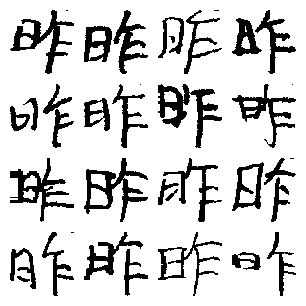 昨昨昨昨
昨昨昨昨
昨昨昨昨
昨昨昨昨